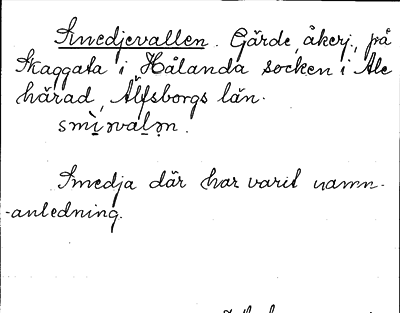 Smedjevallen. Gärde, åkerj., på
Skaggata i Hålanda socken i Ale
härad, Älfsborgs län.
smì̱əvaḻən.
Smedja där har varit namn-
-anledning.